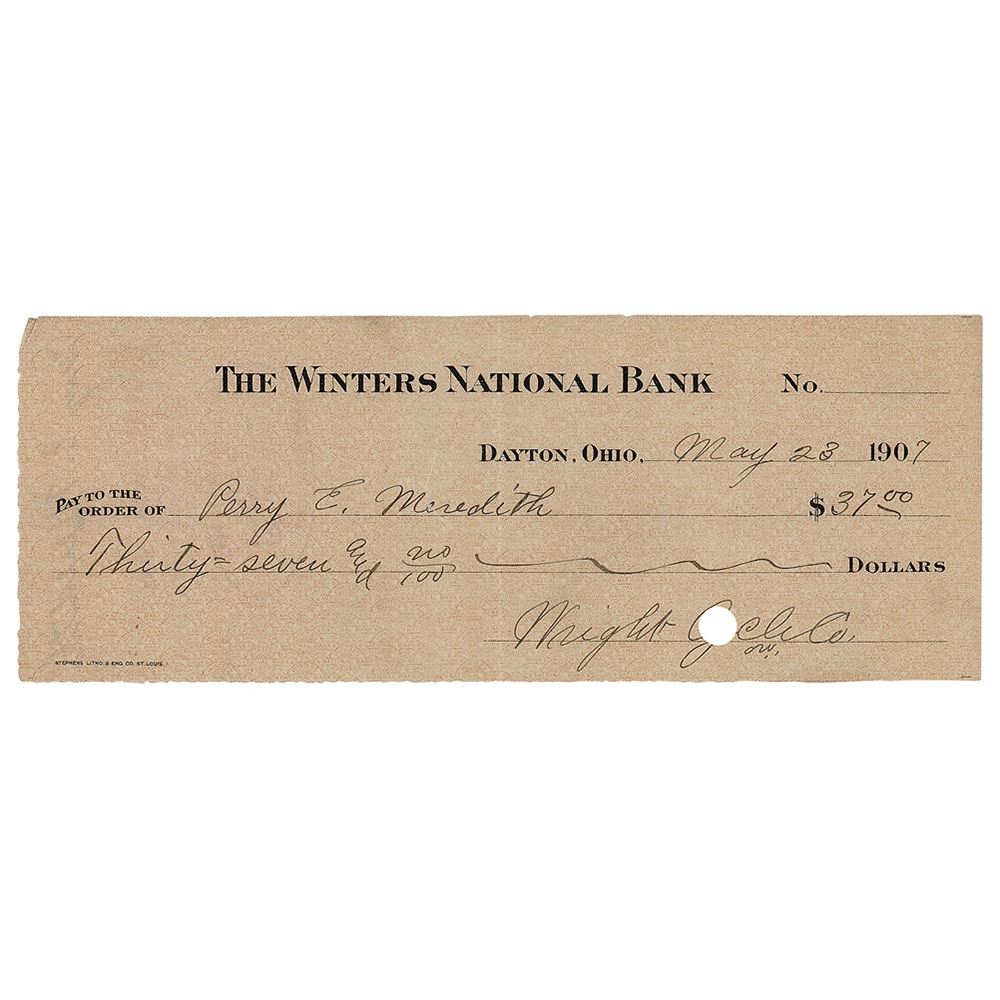 THE WINTERS NATIONAL BANK No.
DAYTON, OHIO, May 23 1907
PAY TO THE ORDER OF Perry E. Meredith $37 00
Thirty=seven and no/100 DOLLARS
Wright Cycle Co.
OW.
STEPHENS LITHO. & ENG. CO. ST. LOUIS.